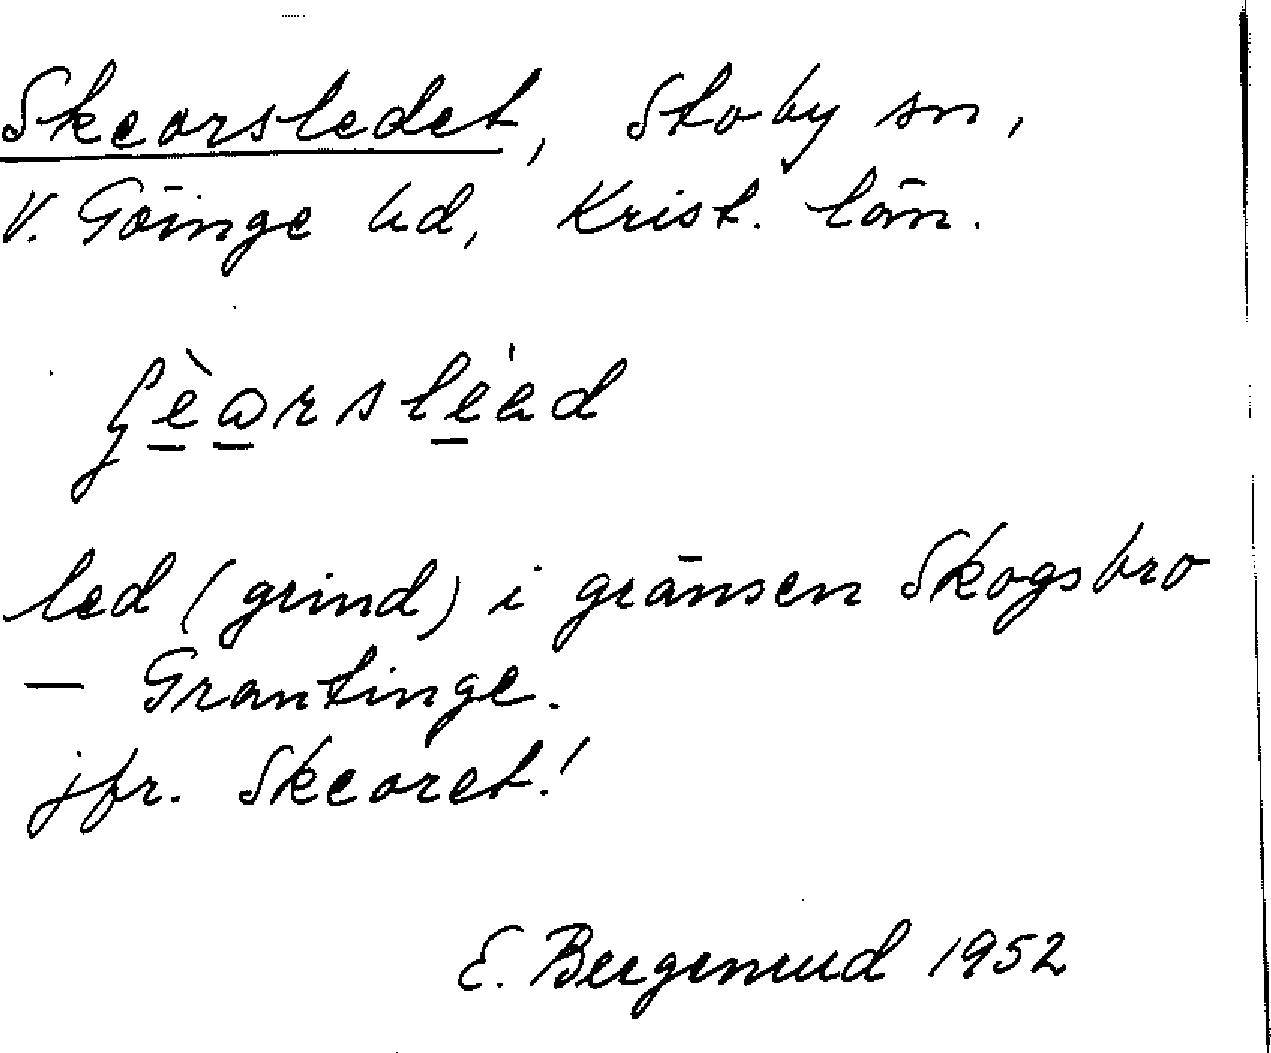 Skeorsledet, Stoby sn,
V. Göinge hd, Krist. län.
led (grind) i gränsen Skogsbro
— Grantinge.
jfr. Skeoret!
E. Bergenrud 1952